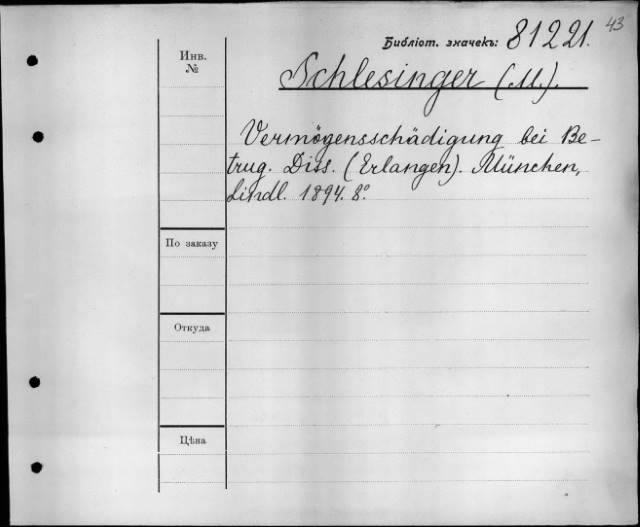 43
Библіот. значекъ: 81221.
Инв.
№
Schlesinger (M.).
Vermögensschädigung bei Be-
trug. Diss. (Erlangen). München,
Lindl. 1894. 8º.
По заказу
Откуда
Цѣна